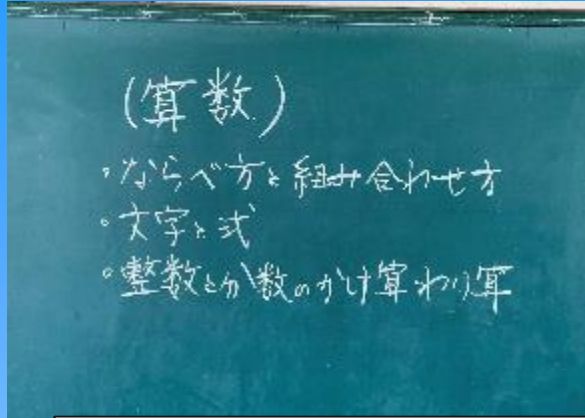 (算数)
・ならべ方と組み合わせ方
・文字と式
・整数と分数のかけ算わり算